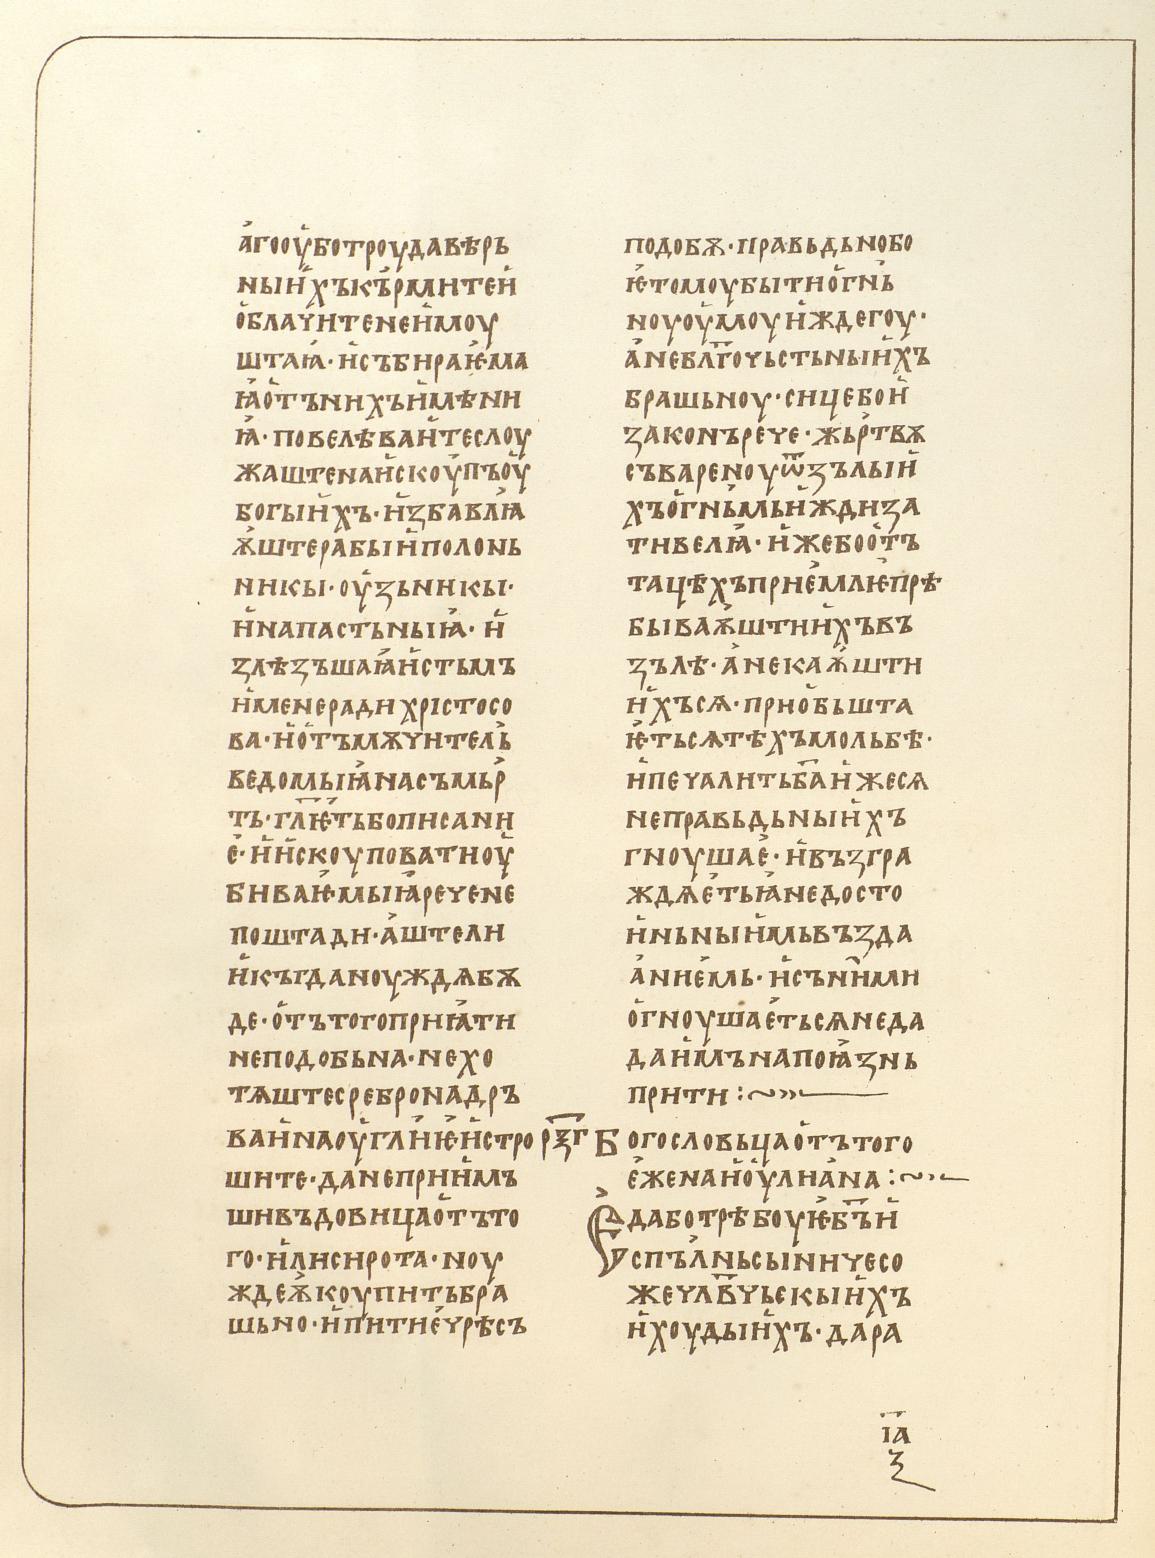 а҆гооу҆ботроудавѣрь
ныи҆хъкъ҆рмитеи҆
о҆блачитенеи҆моу
штаꙗ҆·и҆събираѥ҆ма
ꙗ҆о҆тънихъи҆мѣни
ꙗ҆·повелѣваи҆теслоу
жаштенаи҆скоу҆пъоу҆
богыи҆хъ·и҆ꙁбавлꙗ҆
ѫ҆штерабыи҆полонь
никы·оу҆ꙁьникы·
и҆напастьныꙗ҆·и҆
ꙁлѣꙁъшаꙗ҆и҆стьмъ
и҆менерадихрістосо
ва·и҆о҆тъмѫчитель҆
ведомыꙗ҆насъмьр҆
ть·гл҃ѥ҆тьбописани
е҆·и҆и҆скоуповатиоу҆
биваѥ҆мыꙗ҆речене
поштади·а҆штели
и҆къгданоуждѧбѫ
де·о҆тътогоприꙗ҆ти
неподобьна·нехо
тѧштесребронадръ
ваи҆наоу҆гл҃иѥ҆и҆стро
шите·данеприи҆мъ
шивъдовицао҆тъто
го·и҆лисирота·ноу
ждеѭ҆коупитьбра
шьно·и҆питие҆чрѣсъ
подобѫ·правьдьнобо
ѥ҆томоубытио҆гнь҆
ноуоу҆моуи҆ждегоу·
а҆небл҃гочьстьныи҆хъ
брашьноу·сицебои҆
ꙁаконърече·жьр҆твѫ
съвареноуѿꙁълыи҆
хъо҆гнь҆мьи҆ждиꙁа
тивелꙗ҆·и҆жебоо҆тъ
тацѣхъприе҆млѥ҆прѣ
бываѭ҆штии҆хъвъ
ꙁълѣ·а҆некаѭ҆шти
и҆хъсѧ·прио҆бьшта
ѥ҆тьсѧтѣхъмольбѣ·
и҆печалитьб҃аи҆жесѧ
неправьдьныи҆хъ
гноушае҆·и҆въꙁгра
ждѧе҆тьꙗ҆недосто
и҆ньныи҆мьвъꙁда
а҆ние҆мь·и҆съни҆ми
о҆гноушае҆тьсѧнеда
даи҆мънапоꙗ҆ꙁнь
прити:~»—
рѯ҃г Богословьцао҆тътого
е҆женаи҆оу҆лиа҆на:~»—
Е҆даботрѣбоуѥ҆б҃ъи҆
спъл҆ньсыиничесо
жечлв҃чьскыи҆хъ
и҆хоудыи҆хъ·дара
і҃а
ꙁ